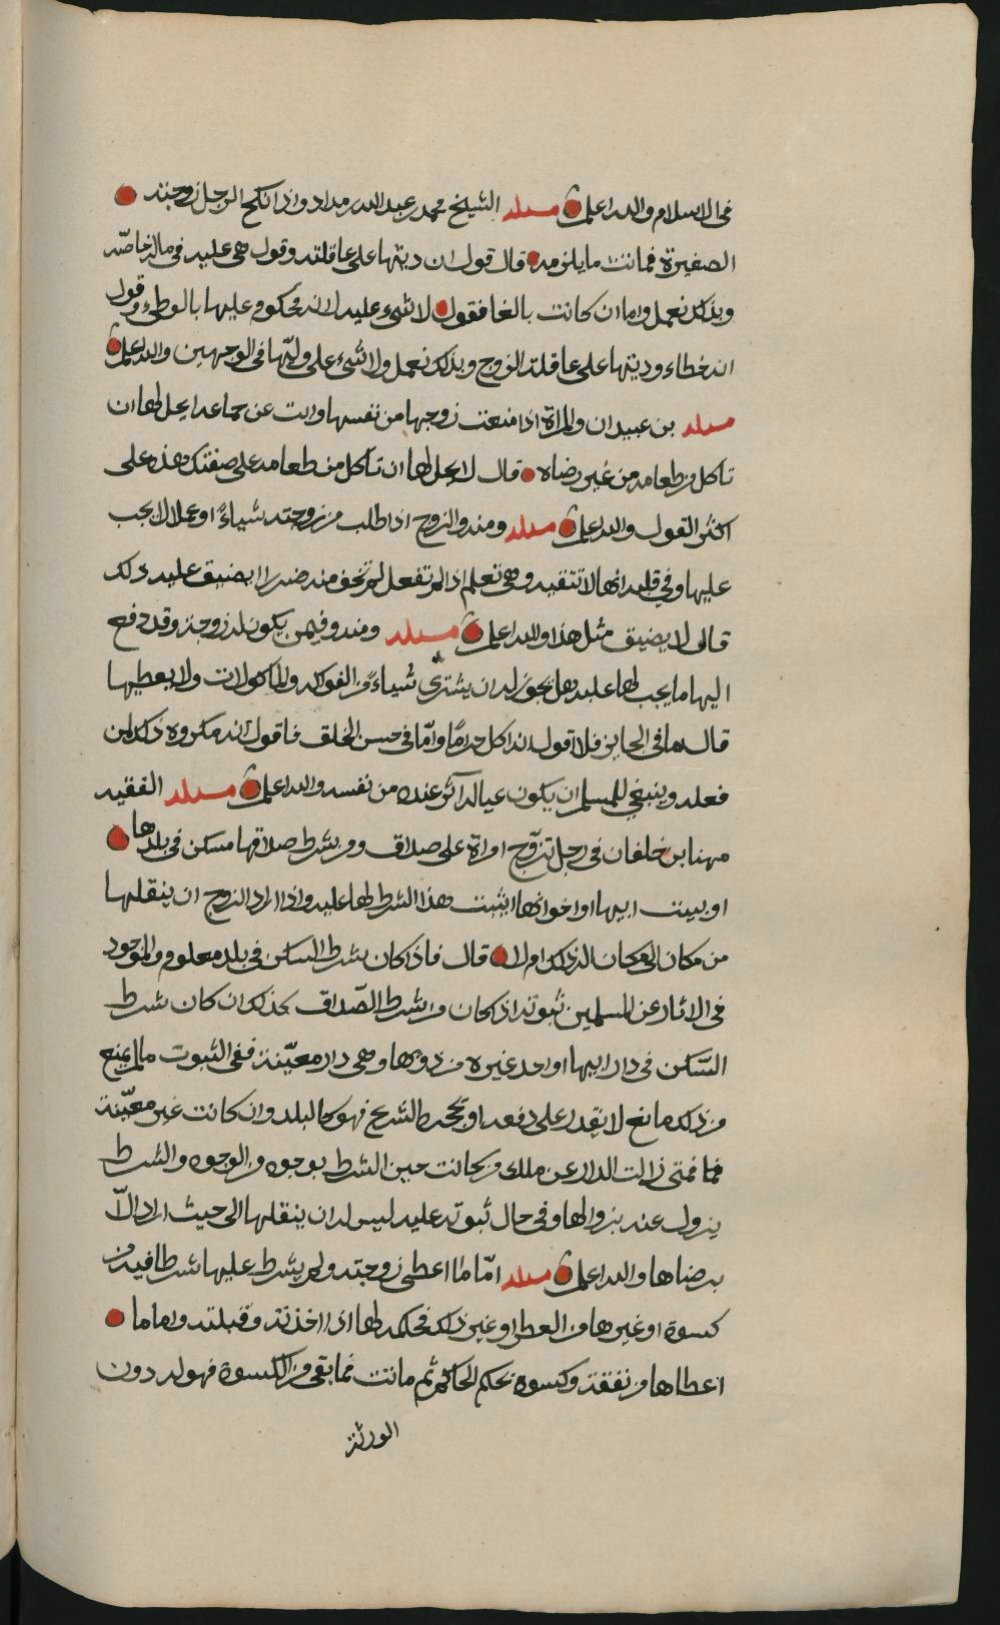 في الاسلام والله اعلم مسئلة الشيخ محمد بن عبدالله بن مداد واذا نكح الرجل زوجته
الصغيرة فماتت ما يلزمه قال قول ان ديتها على عاقلته وقول هي عليه في ماله خاصّة
وبذلك نعمل واما ان كانت بالغا فقول لا شيء عليه لانه محكوم عليها بالوطيء وقول
انه خطاء وديتها على عاقلة الزوج وبذلك نعمل ولا شيء على وليّها في الوجهين والله اعلم
مسئلة بن عبيدان والمراة اذا منعت زوجها من نفسها وابت عن جماعه ايحل لها ان
تاكل من طعامه من غير رضاه قال لا يحل لها ان تاكل من طعامه على صفتك هذه على
اكثر القول والله اعلم مسئلة ومنه والزوج اذا طلب من زوجته شياءً او عملا لا يجب
عليها وفي قلبه انها لا تتقيه وهي تعلم اذا لم تفعل لم تخف منه ضررا ايضيق عليه ذلك
قال لا يضيق مثل هذا والله اعلم مسئلة ومنه وفيمن يكون له زوجة وقد دفع
اليها ما يجب لها عليه هل يجوز له ان يشتري شياءً من الفواكه والماكولات ولا يعطيها
قال اما في الجايز فلا اقول انه اكل حرامًا وامّا في حسن الخلق فاقول انه مكروه ذلك لمن
فعله وينبغي للمسلم ان يكون عياله آثر عنده من نفسه والله اعلم مسئلة الفقيه
مهنا بن خلفان في رجل تزوّج امراة على صداق ومن شرط صداقها مسكن في بلدها
او بيت ابيها او اخوانها ايثبت هذا الشرط لها عليه واذا اراد الزوج ان ينقلها
من مكان الى مكان اله ذلك ام لا قال فاذا كان شرط السكن في بلد معلوم والموجود
في الاثار عن المسلمين ثبوته اذا كان من شرط الصّداق كذلك ان كان شرط
السّكن في دار ابيها او احد غيره من ذويها وهي دار معيّنة ففي الثبوت ما لم يمنع
من ذلك مانع لا يقدر على دفعه او بحجه الشرع فهو كالبلد وان كانت غير معيّنة
فما فمتى زالت الدار عن ملك من كانت حين الشرط بوجه من الوجوه والشرط
يزول عند بزوالها وفي حال ثبوته عليه ليس له ان ينقلها الى حيث اراد الّا
برضاها والله اعلم مسئلة امّا ما اعطى زوجته ولم يشرط عليها شرطا فيه من
كسوة او غيرها من العطر او غير ذلك فحكمه لها اذا اخذته وقبلته واما ما
اعطاها من نفقة وكسوة بحكم الحاكم ثم ماتت فما بقي من الكسوة فهو له دون
الورثة